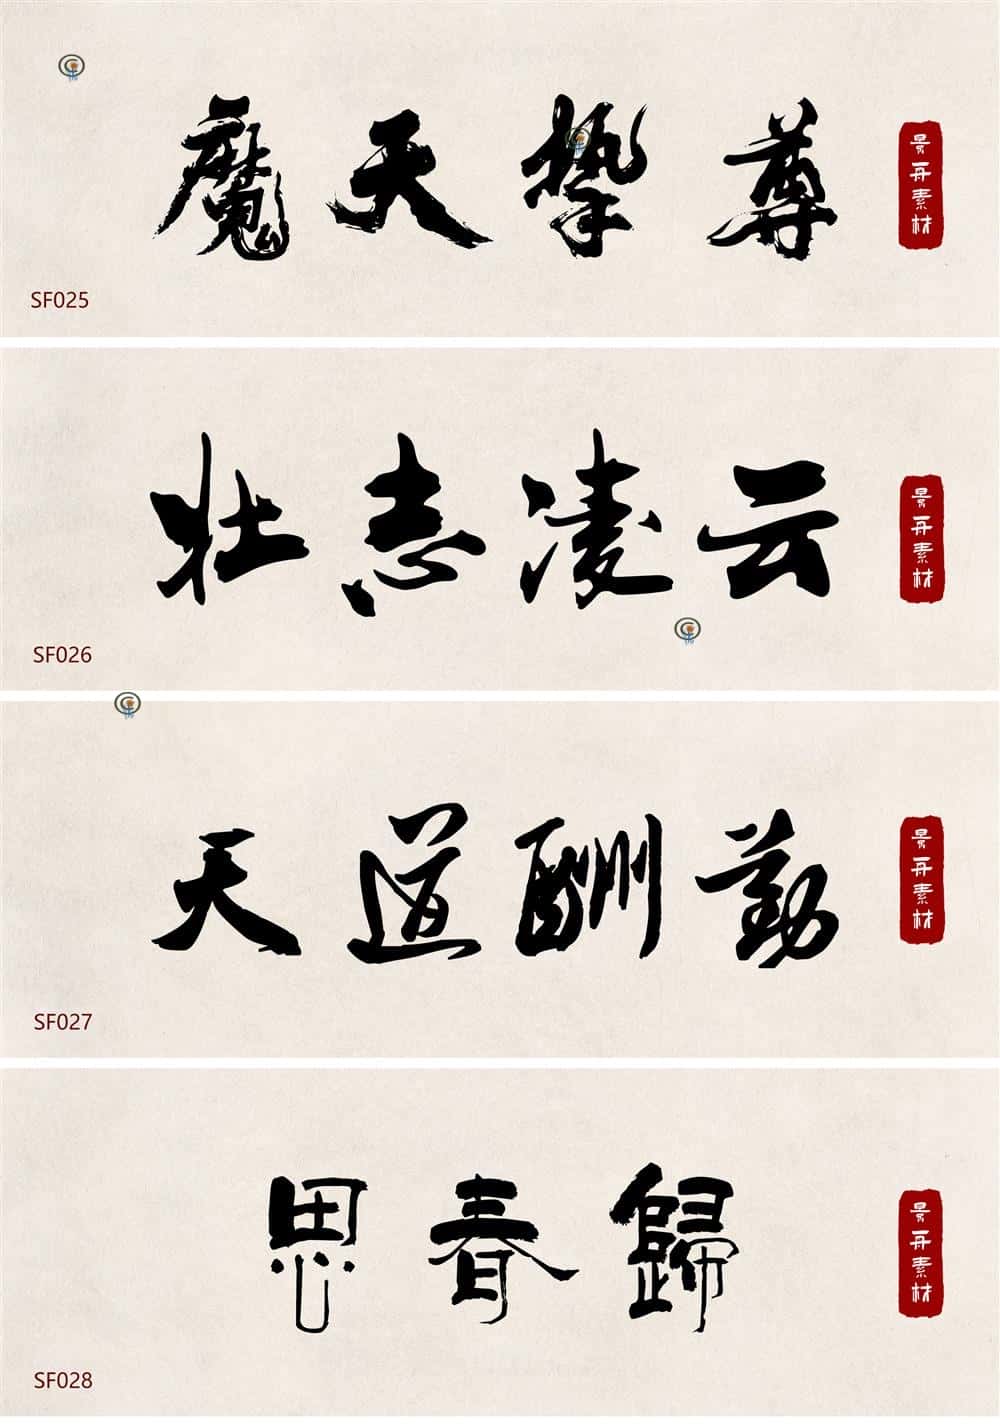 魔天挚尊
景舟素材
SF025
壮志凌云
景舟素材
SF026
天道酬勤
景舟素材
SF027
思春歸
景舟素材
SF028